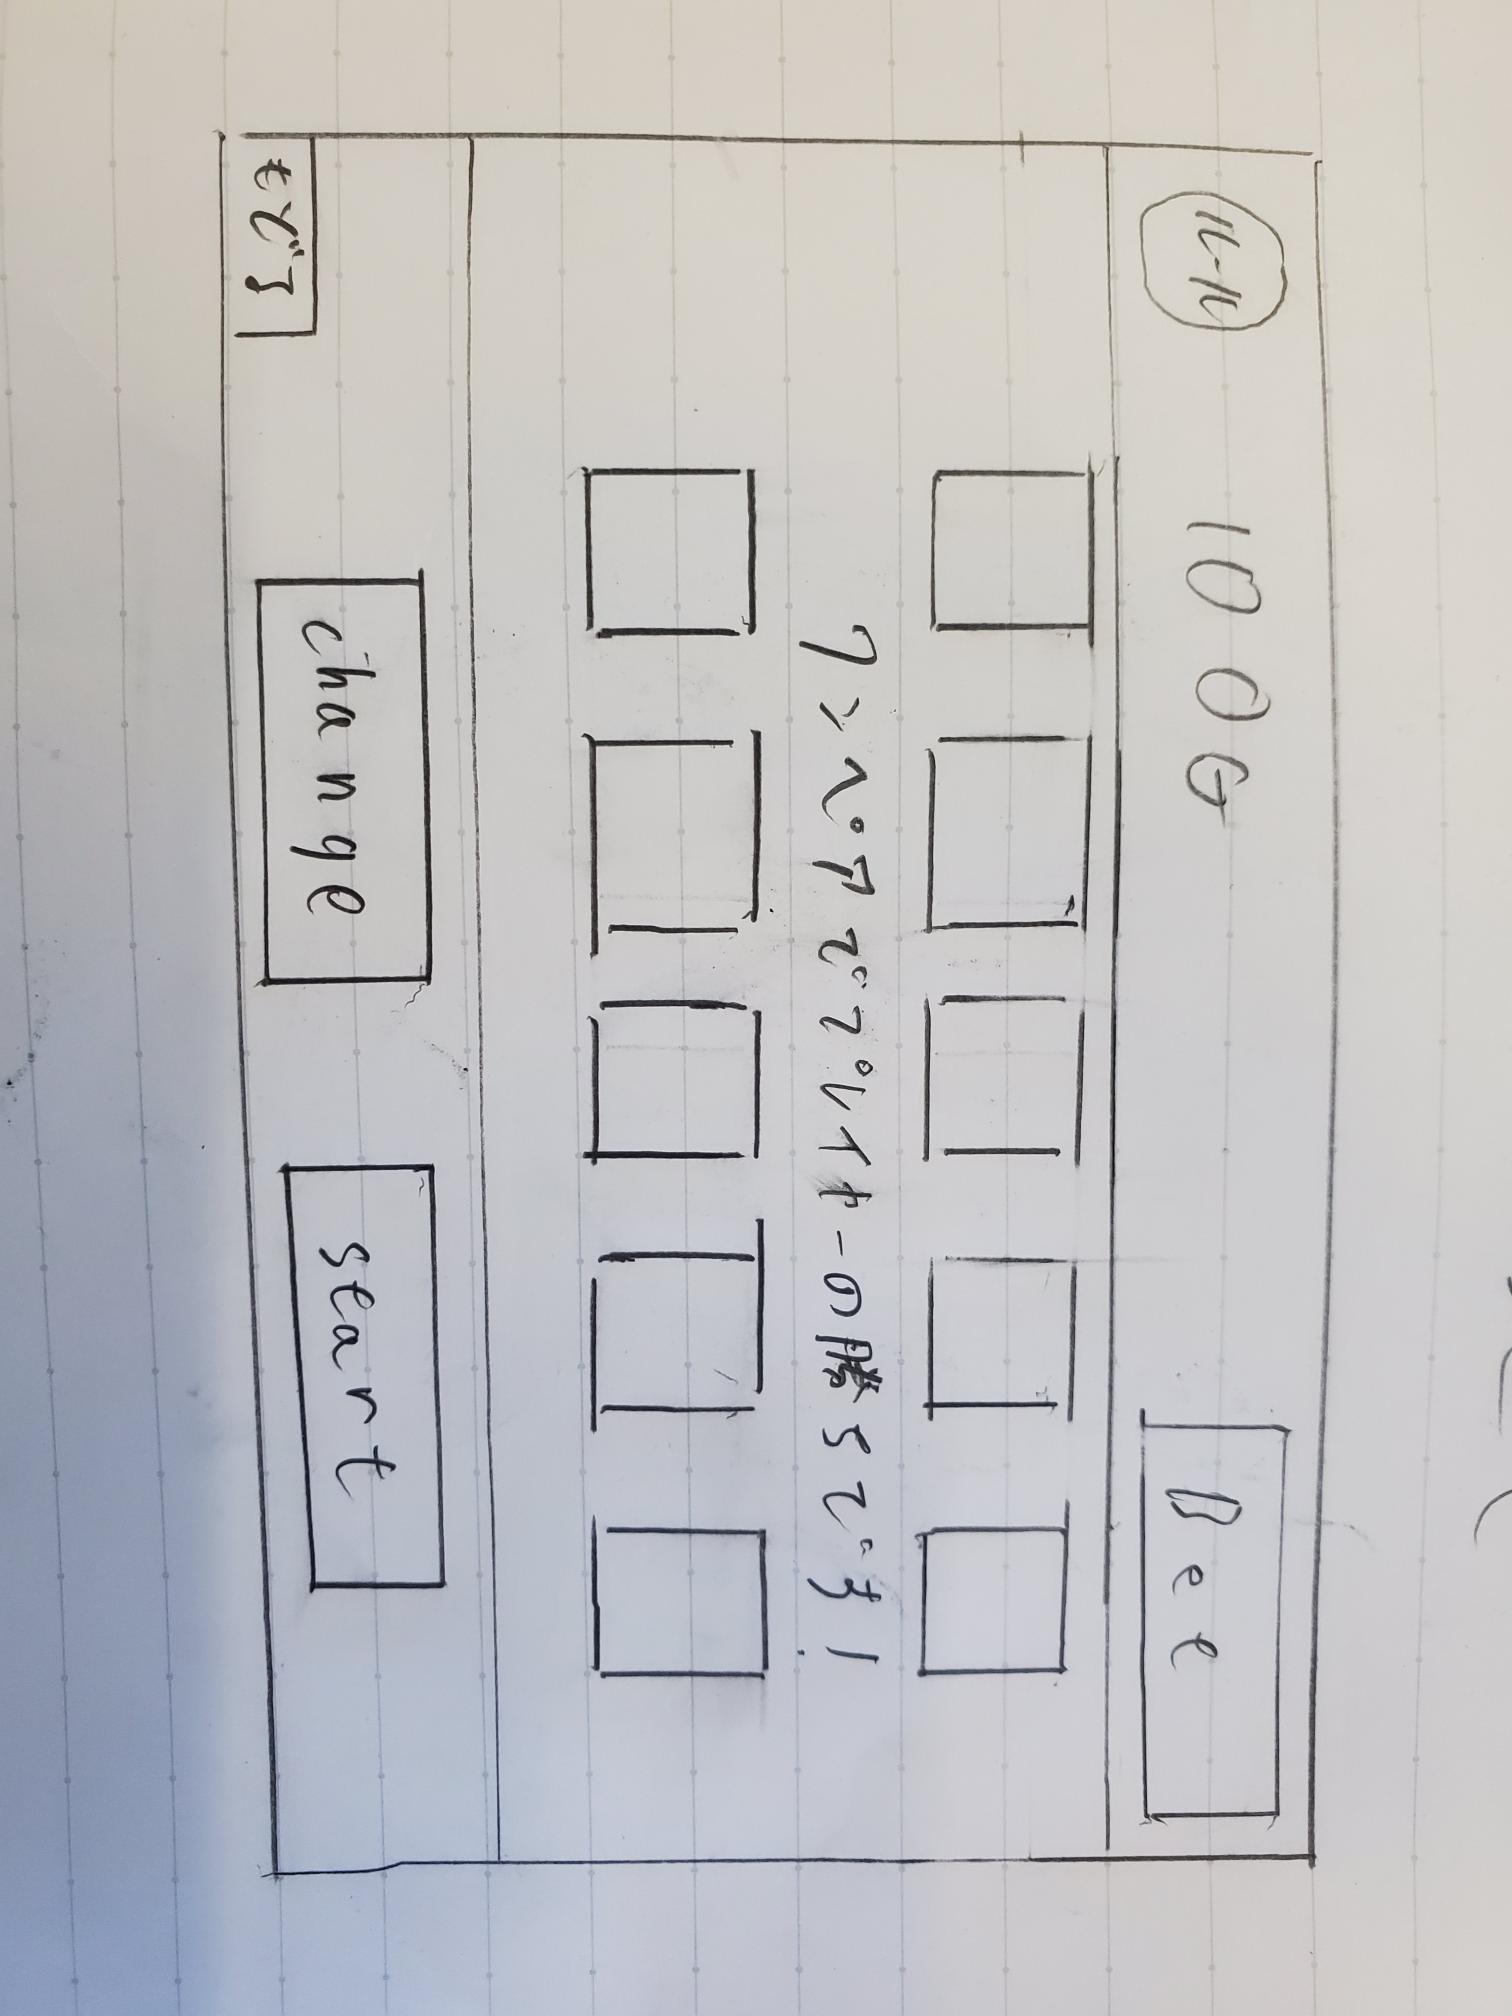 ルール 100G Bet
ワンペアでプレイヤーの勝ちです!
change start
もどる